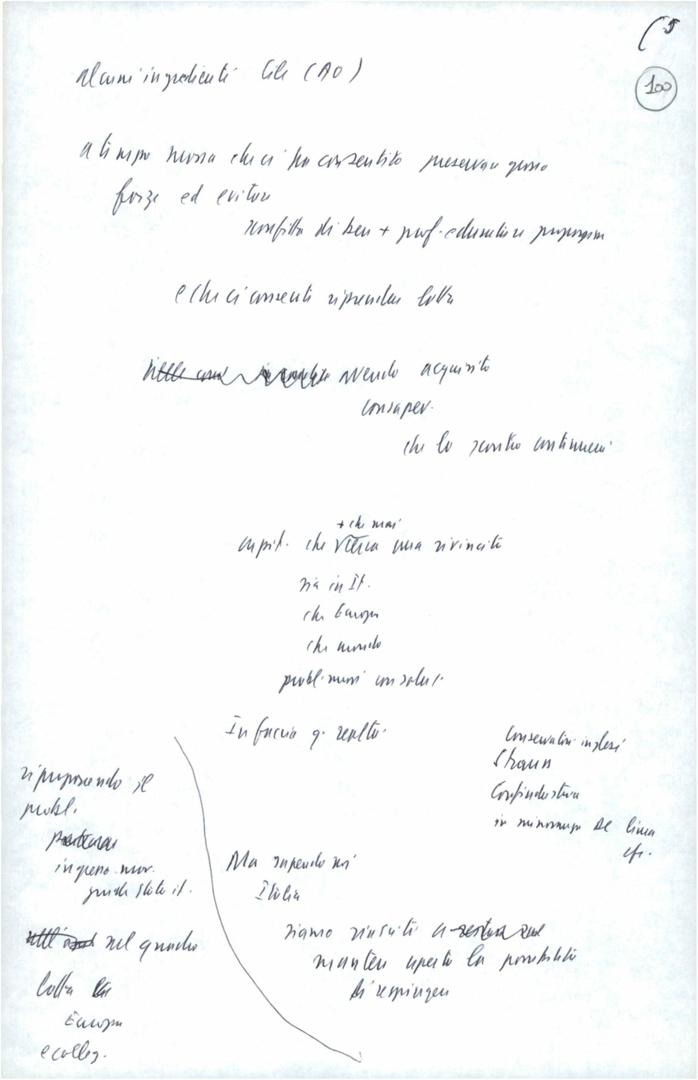 (5
100
alcuni ingredienti Cile (AO)
a tempo mossa che ci ha consentito preservare grosso
forze ed evitare
sconfitta di ben + prof. e duratura proporzion
e che ci consenti riprendere lotta
avendo acquisito
consapev.
che lo scontro continuerà
+ che mai
capit. che cerca una rivincita
sia in It.
che Europa
che mondo
probl. nuovi con solut.
In faccia q. realtà
Conservatori inglesi
Strauss
Confindustria
in minoranza DC linea
riproponendo il
probl.
ingresso mov.
guida stato it.
nel quadro
lotta
Europa
e colleg.
Ma sapendo noi
Italia
siamo riusciti a
manten aperta la possibilità
di respingere